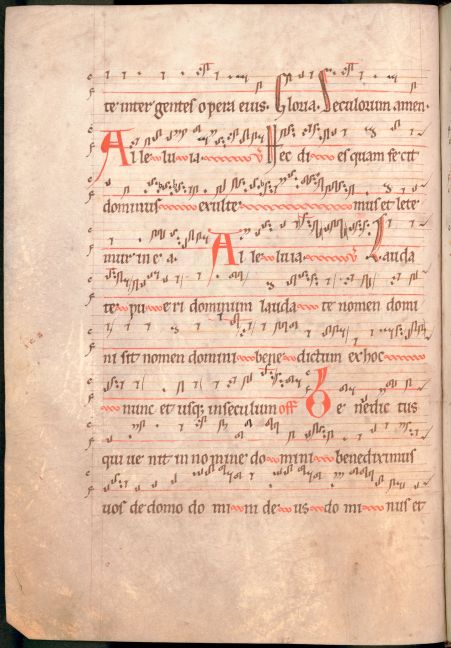 te inter gentes opera eius. Gloria. Seculorum amen.
Alleluia. V Hec dies quam fecit
dominus exulte mus et lete
mur in ea. Alleluia. V Lauda
te pueri dominum lauda te nomen domi
ni sit nomen domini bene dictum ex hoc
nunc et usq; in seculum off Be nedic tus
qui uenit in nomine domini benediximus
uos de domo domini deus dominus et